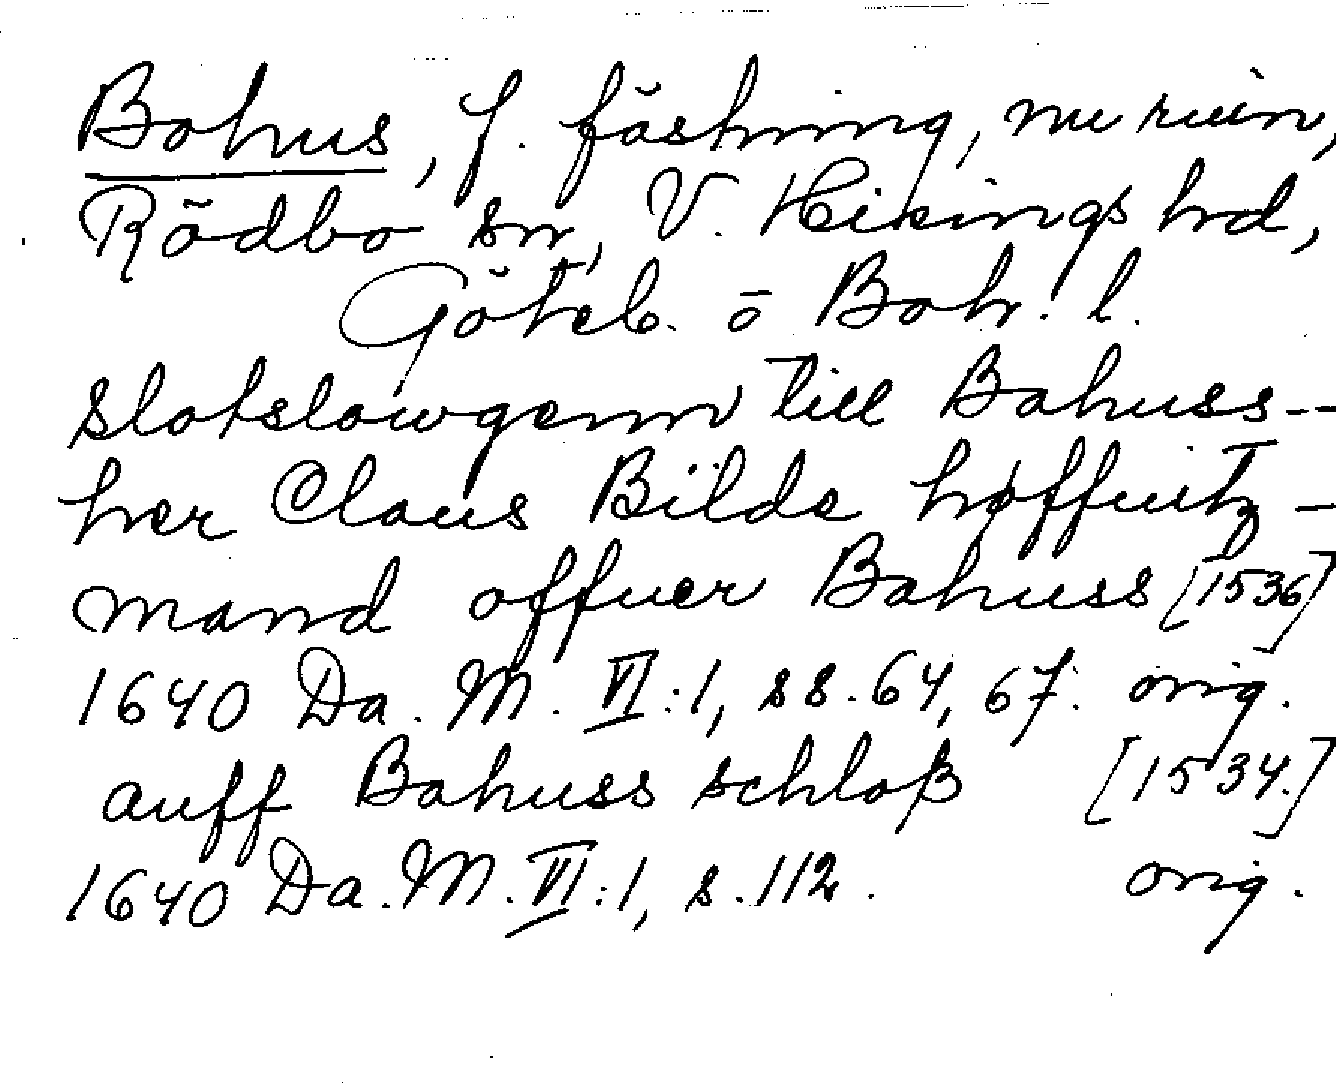 Bohus, f. fästning, nu ruin,
Rödbo sn, V. Hisings hrd,
Göteb. o Boh. l.
slotslowgenn till Bahuss--
her Claus Bilde høffuitz-
mand offuer Bahuss [1536]
1640 Da. M. VI:1, ss. 64, 67. orig.
auff Bahuss schloß [1534.]
1640 Da. M. VI:1, s. 112. orig.